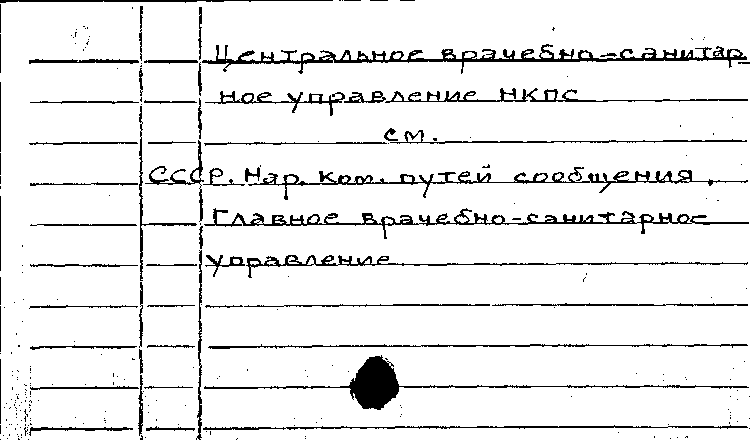 Центральное врачебно-санитар
ное управление НКПС
см.
СССР. Нар. ком. путей сообщения.
Главное врачебно-санитарное
управление